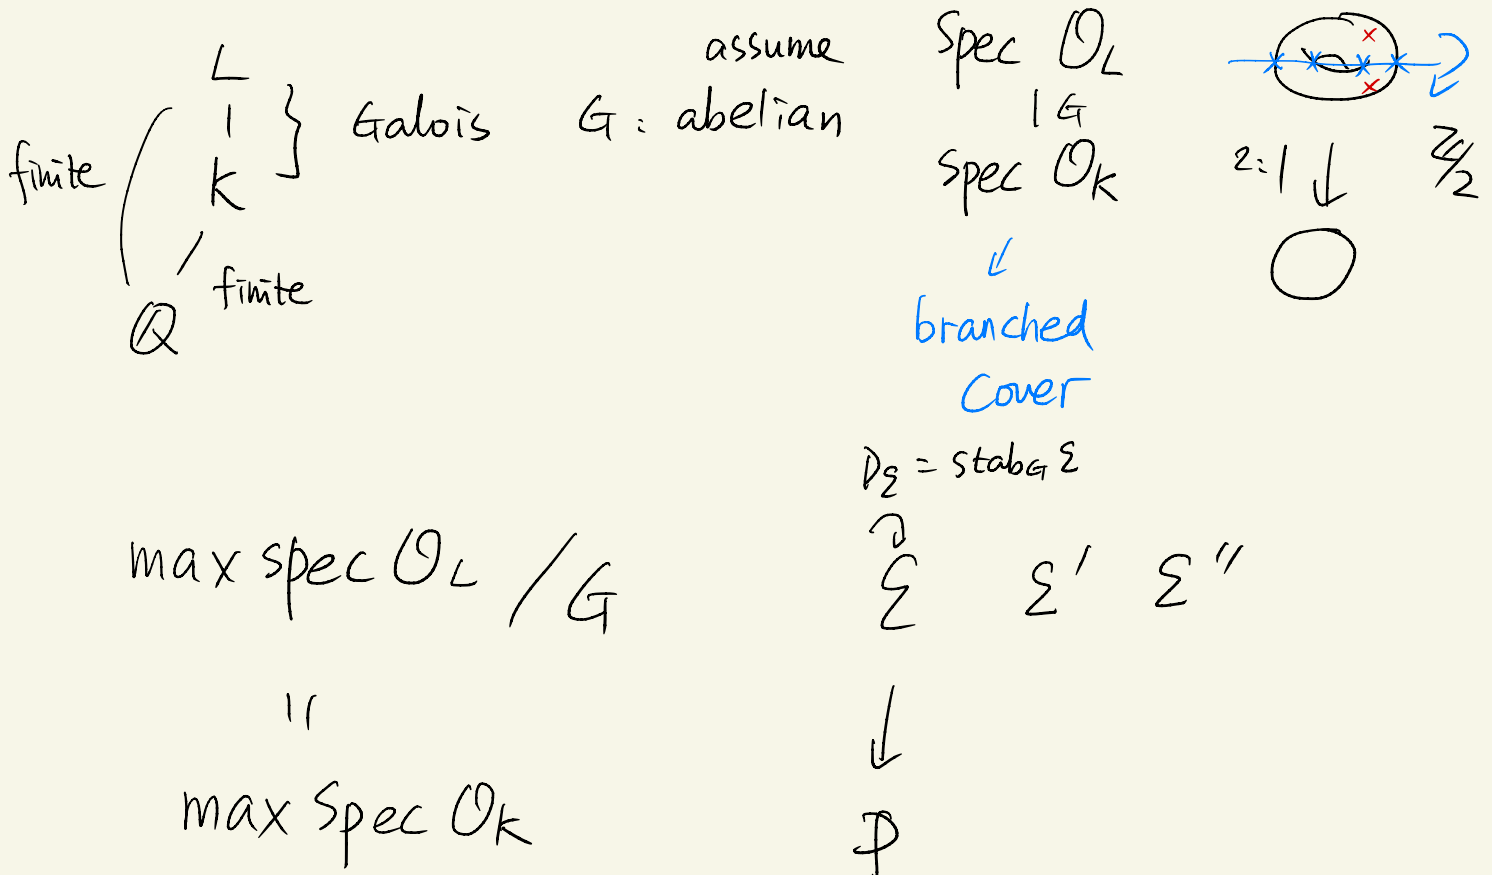 L
|
K
} Galois
finite
finite
ℚ
assume
G : abelian
Spec 𝒪_L
| G
Spec 𝒪_K
branched
cover
2:1 ↓
ℤ/2
D_ξ = stab_G ξ
max spec 𝒪_L / G
ξ ξ' ξ''
=
↓
max Spec 𝒪_K
p